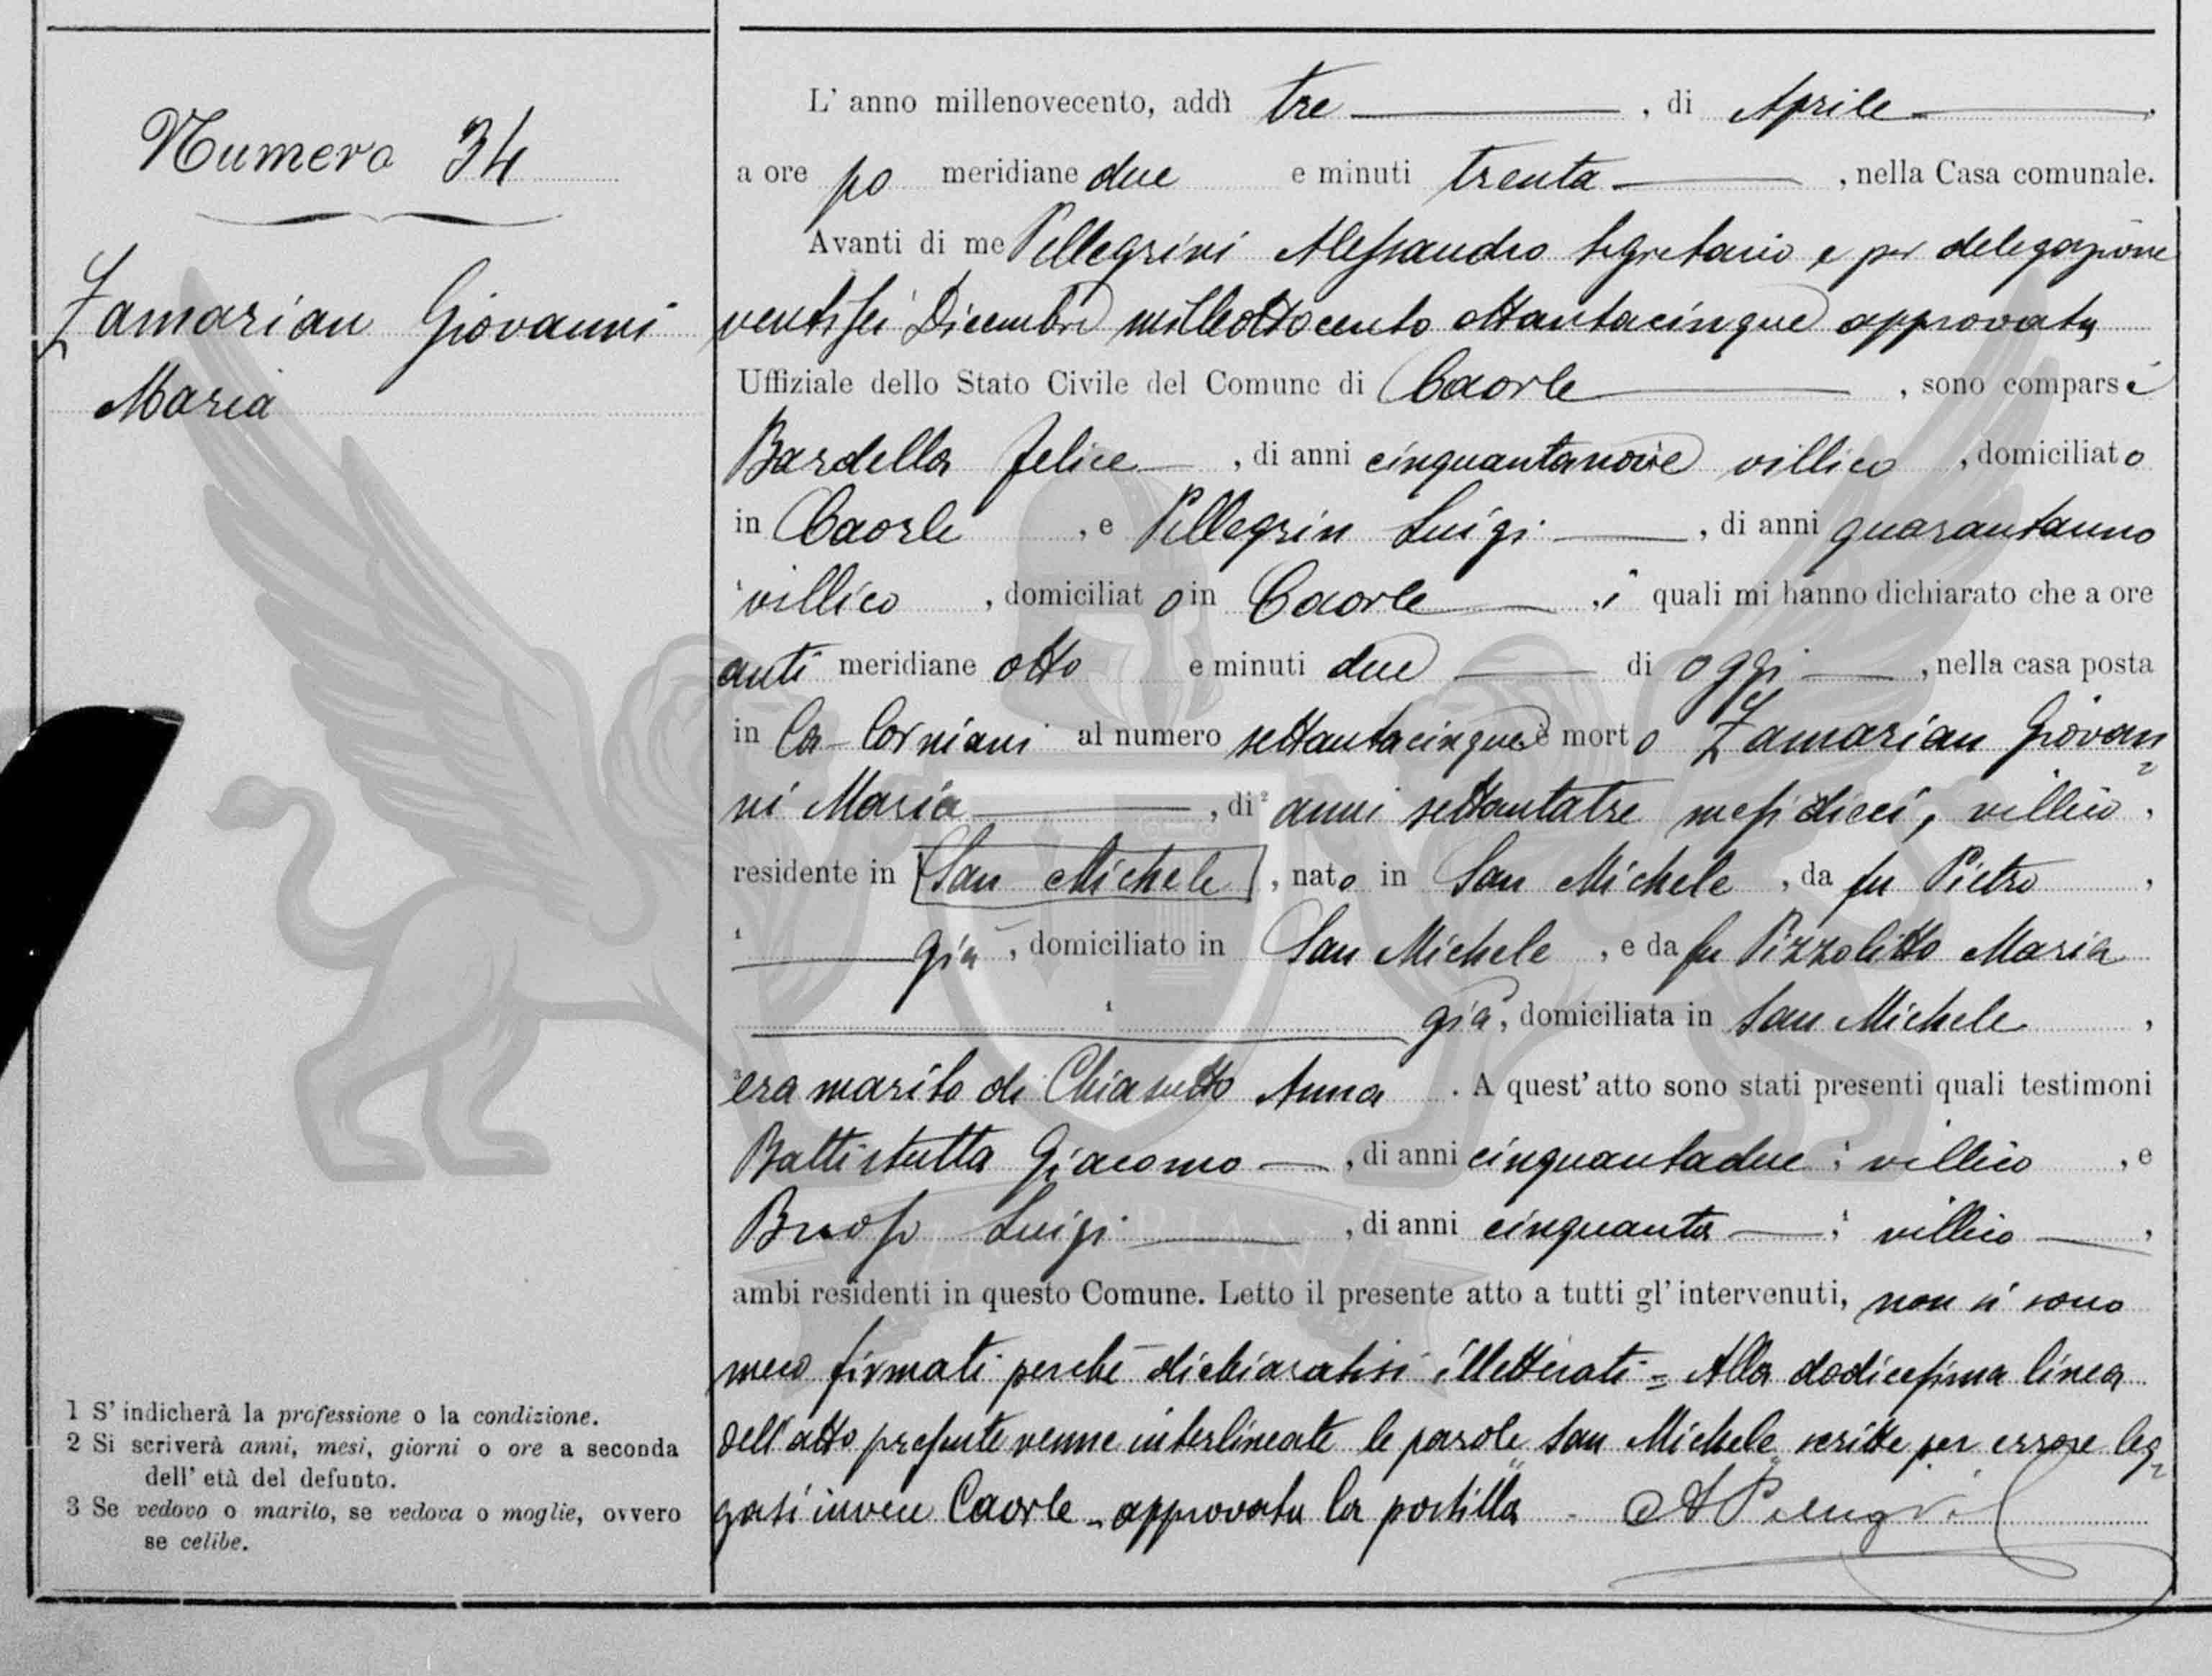 Numero 34
Zamarian Giovanni
Maria
1 S' indicherà la professione o la condizione.
2 Si scriverà anni, mesi, giorni o ore a seconda
dell' età del defunto.
3 Se vedovo o marito, se vedova o moglie, ovvero
se celibe.
L' anno millenovecento, addì tre , di Aprile ,
a ore po meridiane due e minuti trenta , nella Casa comunale.
Avanti di me Pellegrini Alessandro Segretario e per delegazione
ventisei Dicembre milleottocento ottantacinque approvata
Uffiziale dello Stato Civile del Comune di Caorle , sono comparsi
Bardella Felice , di anni cinquantanove villico , domiciliato
in Caorle , e Pellegrin Luigi , di anni quarantauno
1 villico , domiciliato in Caorle , i quali mi hanno dichiarato che a ore
anti meridiane otto e minuti due di oggi , nella casa posta
in Ca-Corniani al numero settantacinque è morto Zamarian Giovan
ni Maria , di 2 anni settantatre mesi dieci, villico ,
residente in San Michele , nato in San Michele , da fu Pietro ,
1 già , domiciliato in San Michele , e da fu Pizzolitto Maria
1 già , domiciliata in San Michele ,
3 era marito di Anna . A quest' atto sono stati presenti quali testimoni
Battistutta Giacomo , di anni cinquantadue , 1 villico , e
Luigi , di anni cinquanta , 1 villico ,
ambi residenti in questo Comune. Letto il presente atto a tutti gl' intervenuti, non si sono
meco firmati perchè dichiaratisi illetterati = Alla dodicesima linea
dell' atto presente venne interlineate le parole "San Michele" scritte per errore leg
gasi invece Caorle - approvata la postilla